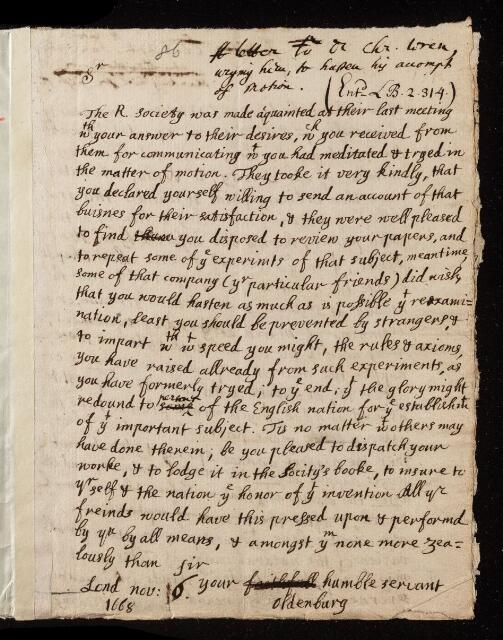 86 A letter To Dr Chr. Wren,
Sr urging him, to hasten his accompt
of Motion. (Entd LB. 2. 314.)
The R. Society was made aquainted at their last meeting
wth your answer to their desires, wch you received from
them for communicating wt you had meditated & tryed in
the matter of motion. They tooke it very kindly, that
you declared yourself willing to send an account of that
buisnes for their satisfaction, & they were well pleased
to find them you disposed to review your papers, and
to repeat some of ye experimts of that subject, meantime
some of that company (yr particular friends) did wish
that you would hasten as much as is possible yt reexami=
nation, least you should be prevented by strangers, &
to impart wth wt speed you might, the rules & axioms,
you have raised allready from such experiments, as
you have formerly tryed; to ye end, yt the glory might
redound to persons of the English nation for ye establishmt
of yt important subject. Tis no matter wt others may
have done therein; be you pleased to dispatch your
worke, & to lodge it in the Socity's booke, to insure to
yr self & the nation ye honor of yt invention. All yr
freinds would have this pressed upon & performd
by yu by all means, & amongst ym none more zea=
lously than Sir
Lond nov: 6. your faithfull humble servant
1668 Oldenburg